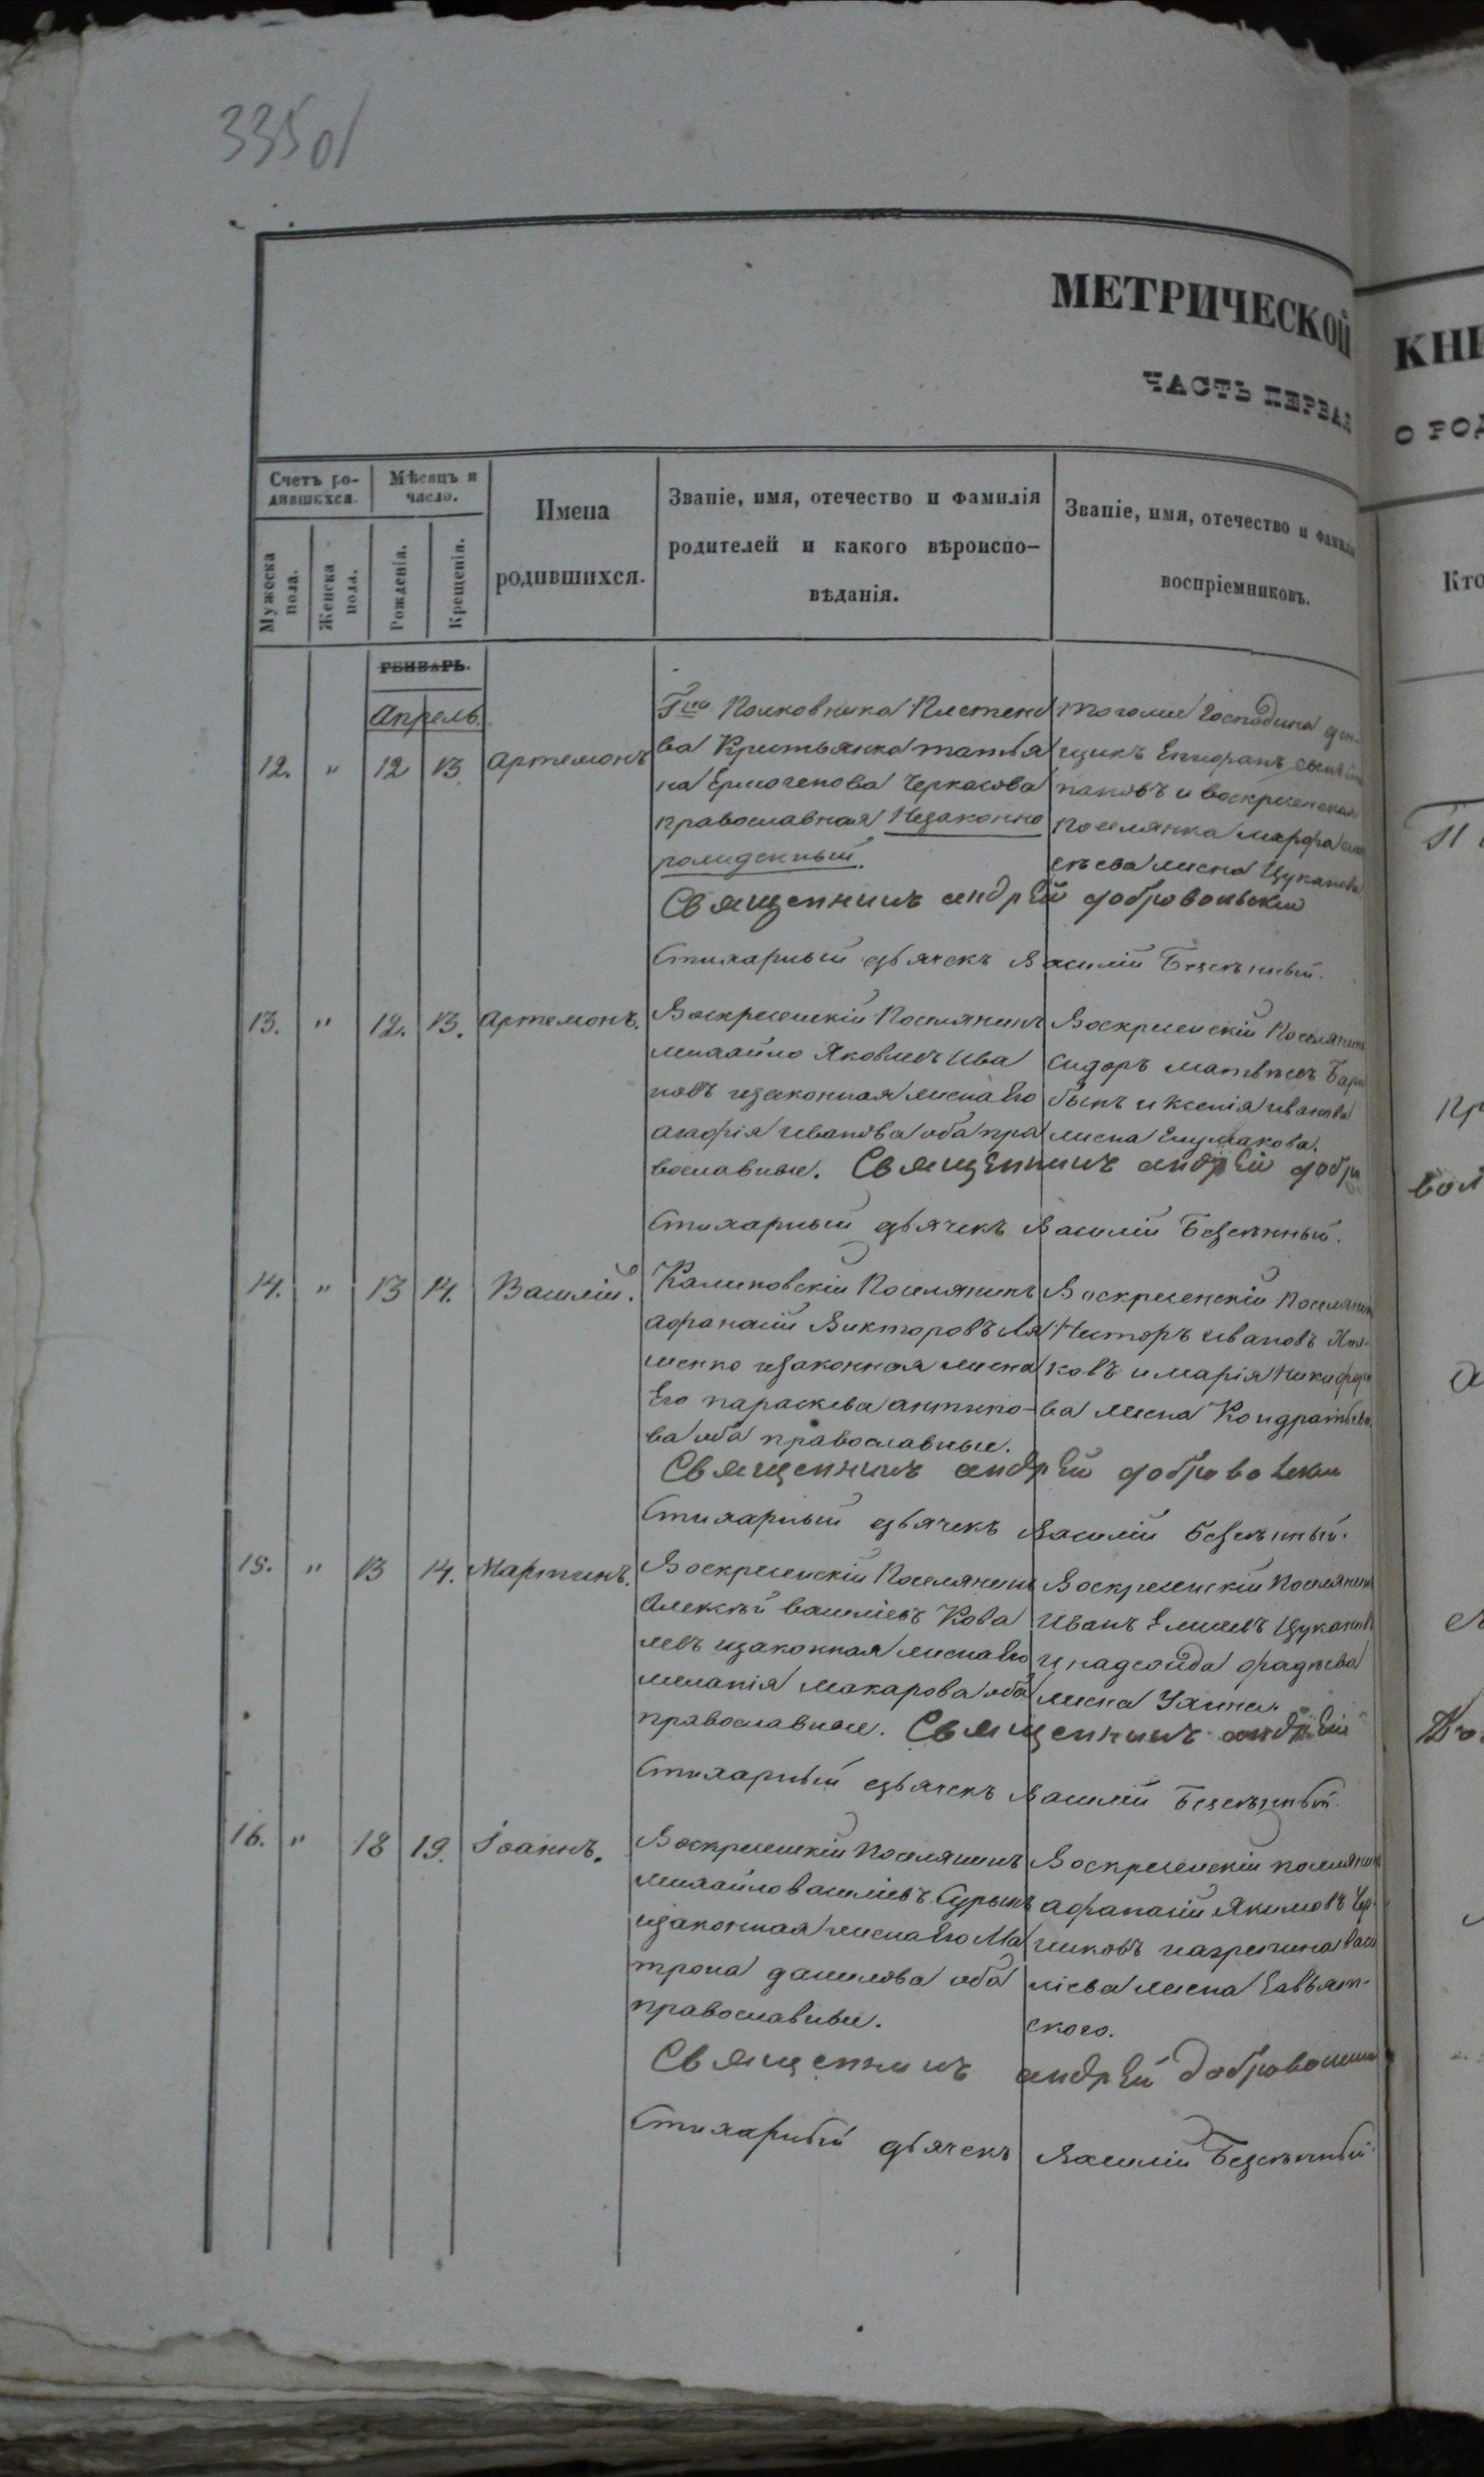 335 об
МЕТРИЧЕСКОЙ
КНИ
ЧАСТЬ ПЕРВАЯ
О РОД
Счетъ ро-
дившихся.
Мѣсяцъ и
число.
Мужеска
пола.
Женска
пола.
Рожденія.
Крещенія.
Имена
родившихся.
Званіе, имя, отечество и фамилія
родителей и какого вѣроиспо-
вѣданія.
Званіе, имя, отечество и фамилія
воспріемниковъ.
Кто
Генварь.
Апрель.
12. " 12 13 Артемонъ
Гна Полковника
ва Крестьянка татья
на Ермогенова Черкасова
православная Незаконно
рожденный.
тогоже Господина ден-
щикъ Епифанъ
пановъ и воскресенская
Поселянка марфа
жена Цуканова
Священникъ андрей добровольскій
Стихарный дьячекъ Василій Безсѣнный.
13. " 12. 13. Артемонъ.
Воскресенскій Поселянинъ
михайло Яковлевъ Ива
новъ изаконная жена Его
агафія иванова оба пра
вославные.
Воскресенскій Поселянинъ
Сидоръ матвѣевъ
и Ксенія иванова
жена
Священникъ андрей добро
Стихарный дьячекъ Василій Безсѣнный.
14. " 13 14. Василій.
Калиновскій Поселянинъ
афанасій Викторовъ Ля
шенко изаконная жена
Его параскева антипо-
ва оба православные.
Воскресенскій Поселянинъ
Несторъ ивановъ
ковъ и марія Никифоро
ва жена Кондратьева
Священникъ андрей добровольскій
Стихарный дьячекъ Василій Безсѣнный.
15. " 13 14. Мартинъ.
Воскресенскій Поселянинъ
Алексѣй васильевъ Кова
левъ изаконная жена Его
меланія макарова оба
православные.
Воскресенскій Поселянинъ
Иванъ Цукановъ
и надежда фадѣева
жена
Священникъ андрей
Стихарный дьячекъ Василій Безсѣнный.
16. " 18 19. Іоаннъ.
Воскресенскій Поселянинъ
михайло василіевъ
изаконная жена Его Ма
трона данилова оба
православные.
Воскресенскій поселянинъ
афанасій Якимовъ
васи
ліева жена
ского.
Священникъ андрей добровольскій
Стихарный дьячекъ Василій Безсѣнный